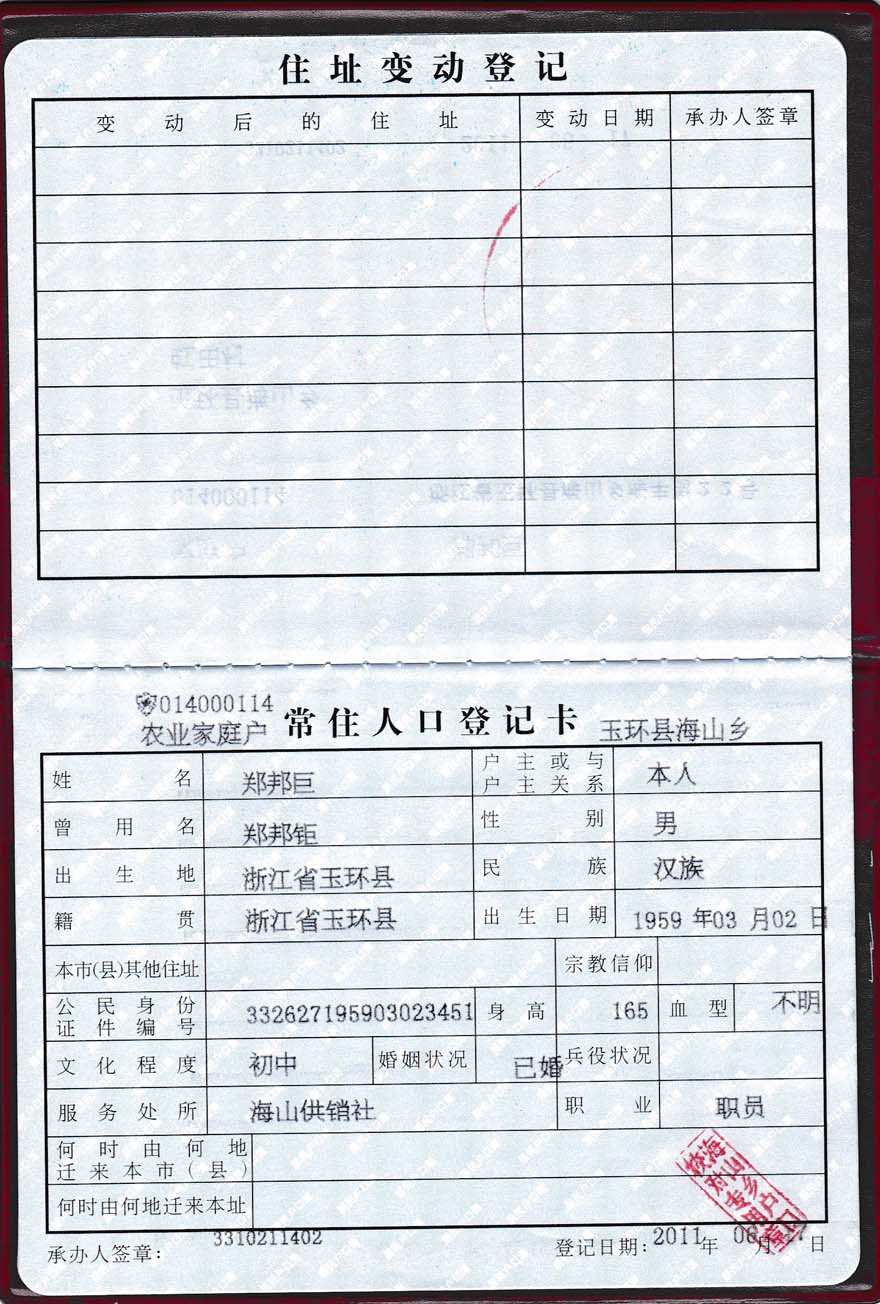 住址变动登记
变动后的住址 变动日期 承办人签章
014000114
农业家庭户 常住人口登记卡 玉环县海山乡
姓名 郑邦巨 户主或与户主关系 本人
曾用名 郑邦钜 性别 男
出生地 浙江省玉环县 民族 汉族
籍贯 浙江省玉环县 出生日期 1959年03月02日
本市(县)其他住址 宗教信仰
公民身份证件编号 332627195903023451 身高 165 血型 不明
文化程度 初中 婚姻状况 已婚 兵役状况
服务处所 海山供销社 职业 职员
何时由何地迁来本市(县)
何时由何地迁来本址
承办人签章: 3310211402 登记日期: 2011年06月17日